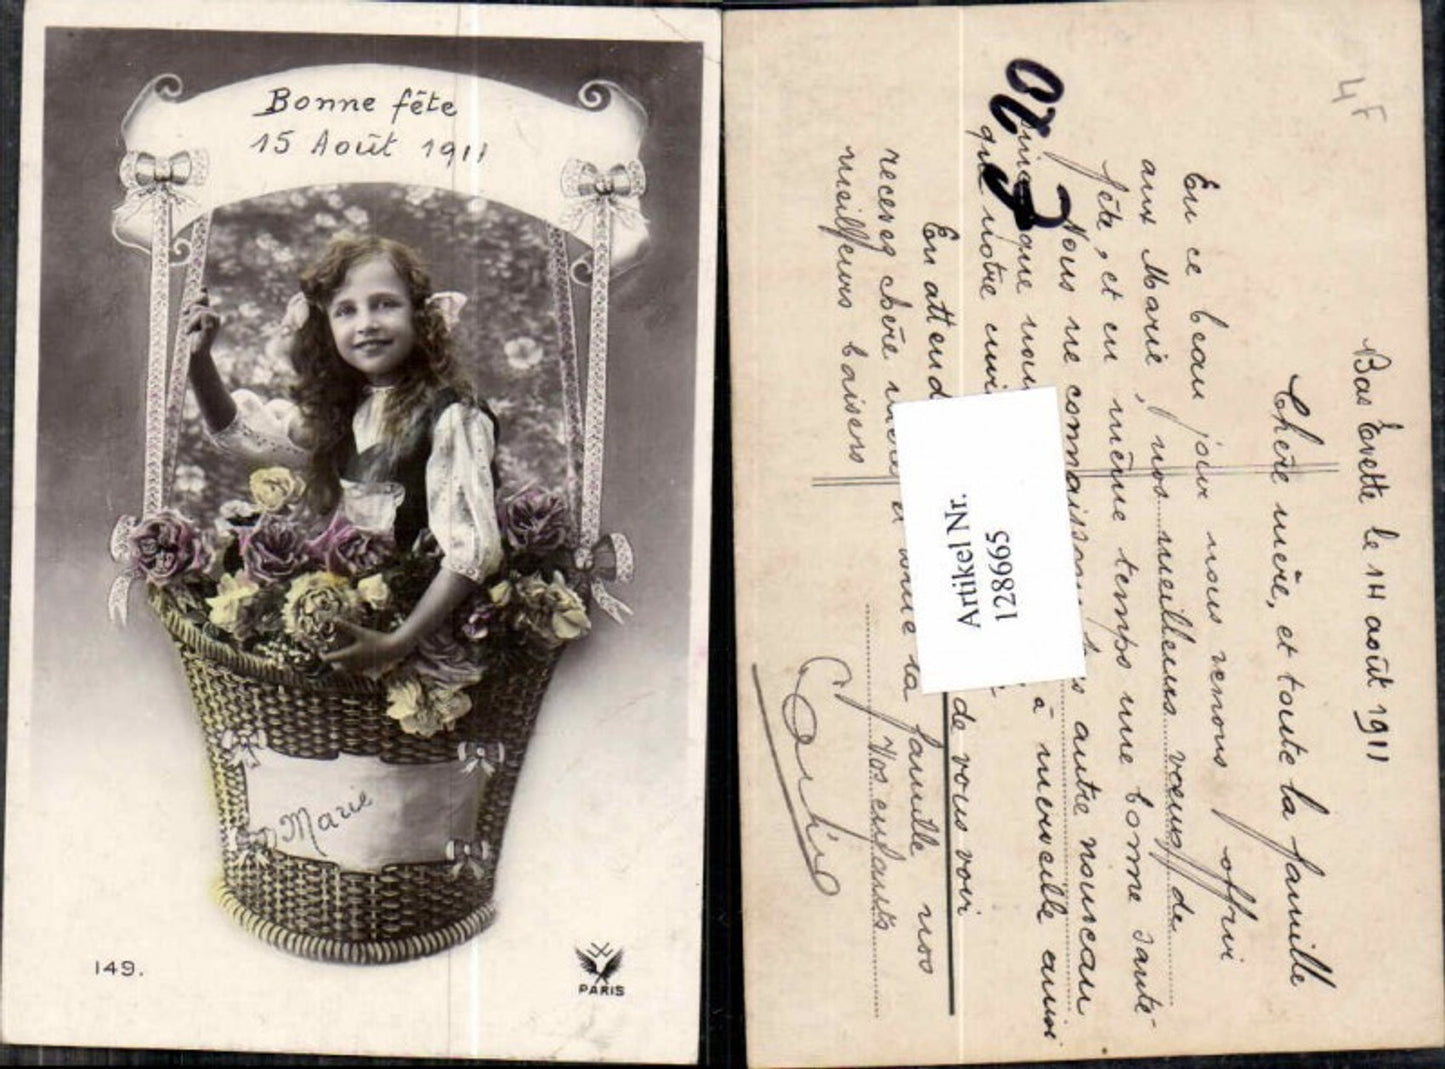 Bonne fête
15 Août 1911
Marie
149.
PARIS
4F
Bas Evette le 14 août 1911
Chère mère, et toute la famille
En ce beau jour nous venons offrir
aux Marie, nos meilleurs vœux de
fête, et en même temps une bonne santé
Nous ne connaissons autre nouveau
que nous à merveille ainsi
que votre
En attend de vous voir
recevez chère la famille nos
meilleurs baisers Vos enfants
Artikel Nr.
128665